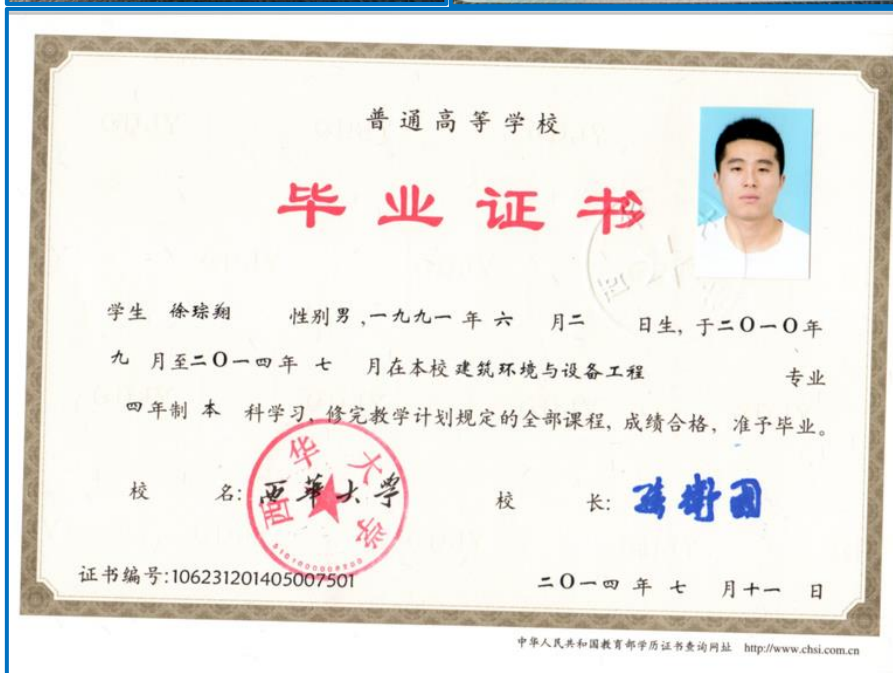 普通高等学校
毕业证书
学生 徐琮翔 性别 男 ,一九九一 年 六 月 二 日生, 于二〇一〇年
九 月至二〇一四年 七 月在本校 建筑环境与设备工程 专业
四年制 本 科学习, 修完教学计划规定的全部课程, 成绩合格, 准予毕业。
校 名: 西华大学 校 长: 孙卫国
西华大学
5101000009200
证书编号:106231201405007501 二〇一四 年 七 月十一 日
中华人民共和国教育部学历证书查询网址 http://www.chsi.com.cn